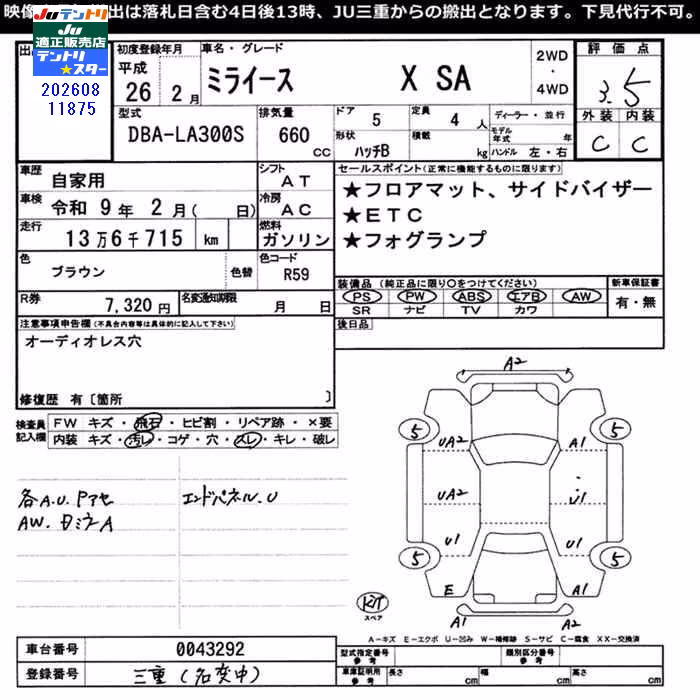 映像 出は落札日含む4日後13時、JU三重からの搬出となります。下見代行不可。
Ju テントリ
Ju
適正販売店
テントリ
★スター
202608
11875
初度登録年月
平成
26 2月
車名・グレード
ミライース X SA
2WD
・
4WD
評価点
3.5
外装 内装
C C
型式
DBA-LA300S
排気量
660
cc
ドア 5
形状 ハッチB
定員 4 人
積載 kg
ディーラー・並行
モデル年式 年
ハンドル 左・右
車歴
自家用
シフト
AT
車検
令和 9年 2月( 日)
冷房
AC
走行
13万6千715 km
燃料
ガソリン
色
ブラウン
色替
色コード
R59
R券
7,320円
名変通知期限
月 日
セールスポイント(正常に機能するものに限ります)
★フロアマット、サイドバイザー
★ETC
★フォグランプ
装備品 (純正品に限り○をつけてください)
PS PW ABS エアB AW
SR ナビ TV カワ
新車保証書
有・無
後日品
注意事項申告欄(不具合内容等は具体的に記入して下さい)
オーディオレス穴
修復歴 有〔箇所 〕
検査員
記入欄
FW キズ・飛石・ヒビ割・リペア跡・×要
内装 キズ・汚レ・コゲ・穴・スレ・キレ・破レ
各A.U.Pアセ
エンドパネル.U
AW.
A
A2
5
5
UA2
A1
UA2
U1
U1
U1
5
5
E
A1
A1
A2
スペア
A-キズ E-エクボ U-凹み W-補修跡 S-サビ C-腐食 XX-交換済
車台番号
0043292
登録番号
三重(名変中)
型式指定番号
参考
類別区分番号
参考
車庫証明用
参考
長さ cm
幅 cm
高さ cm